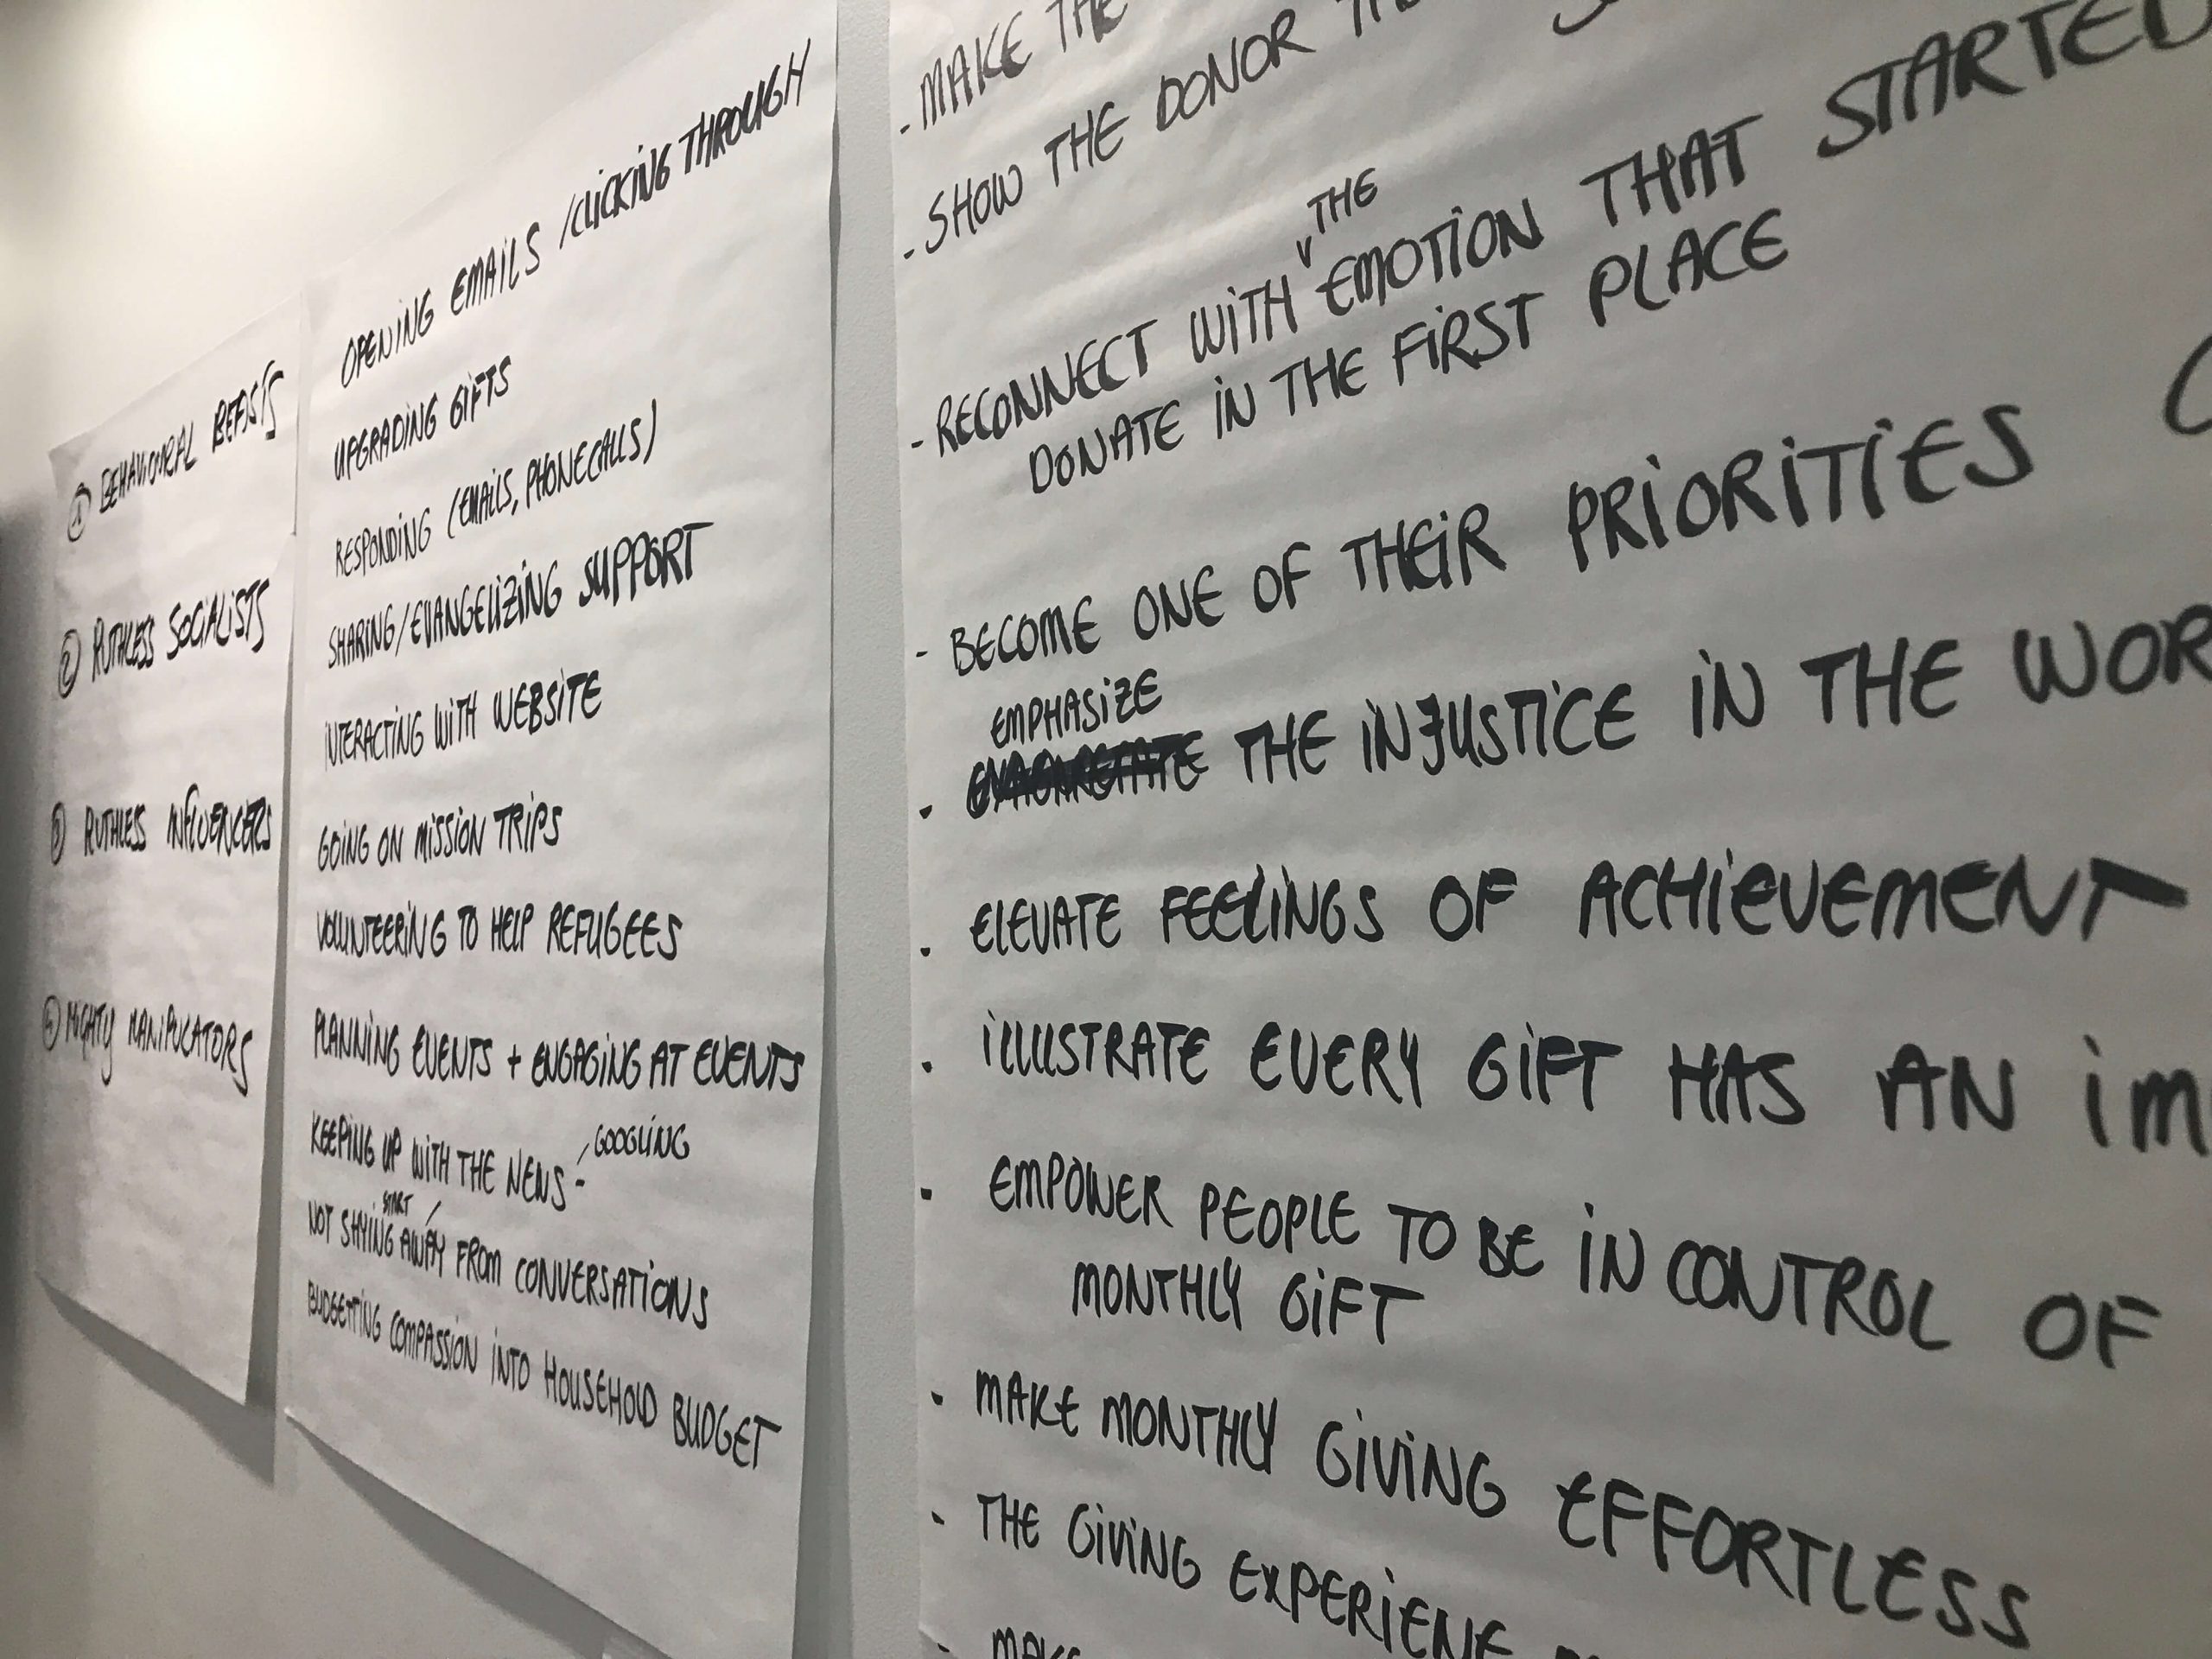 ① BEHAVIOURAL BEASTS
② RUTHLESS SOCIALISTS
③ RUTHLESS INFLUENCERS
MIGHTY MANIPULATORS
OPENING EMAILS / CLICKING THROUGH
UPGRADING GIFTS
RESPONDING (EMAILS, PHONECALLS)
SHARING/EVANGELIZING SUPPORT
INTERACTING WITH WEBSITE
GOING ON MISSION TRIPS
VOLUNTEERING TO HELP REFUGEES
PLANNING EVENTS + ENGAGING AT EVENTS
KEEPING UP WITH THE NEWS - / GOOGLING
START /
NOT SHYING AWAY FROM CONVERSATIONS
BUDGETTING COMPASSION INTO HOUSEHOLD BUDGET
- MAKE THE
- SHOW THE DONOR
THE
- RECONNECT WITH EMOTION THAT STARTED
DONATE IN THE FIRST PLACE
- BECOME ONE OF THEIR PRIORITIES
EMPHASIZE
- THE INJUSTICE IN THE WOR
- ELEVATE FEELINGS OF ACHIEVEMENT
- ILLUSTRATE EVERY GIFT HAS AN IM
- EMPOWER PEOPLE TO BE IN CONTROL OF
MONTHLY GIFT
- MAKE MONTHLY GIVING EFFORTLESS
- THE GIVING EXPERIENE
- MAKE